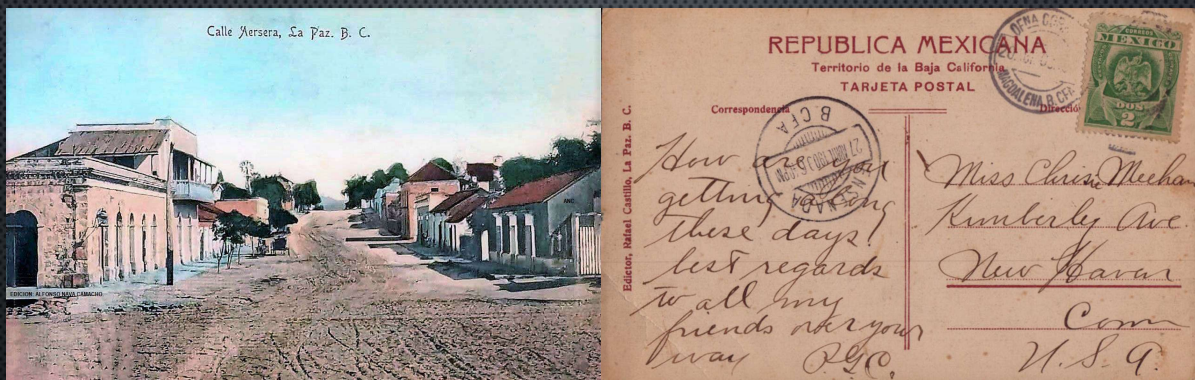 Calle Aersera, La Paz. B. C.
EDICION: ALFONSO NAVA CAMACHO
REPUBLICA MEXICANA
Territorio de la Baja California
TARJETA POSTAL
Correspondencia
Dirección
Edictor, Rafael Castillo, La Paz. B. C.
CORREOS
MEXICO
DOS
2
MAGDALENA B. CFA
B. CFA
How are you
getting along
these days!
best regards
to all my
friends over your
way P.G.C.
Miss Chrisie Meehan
Kimberly Ave.
New Havan
Conn
U.S.A.